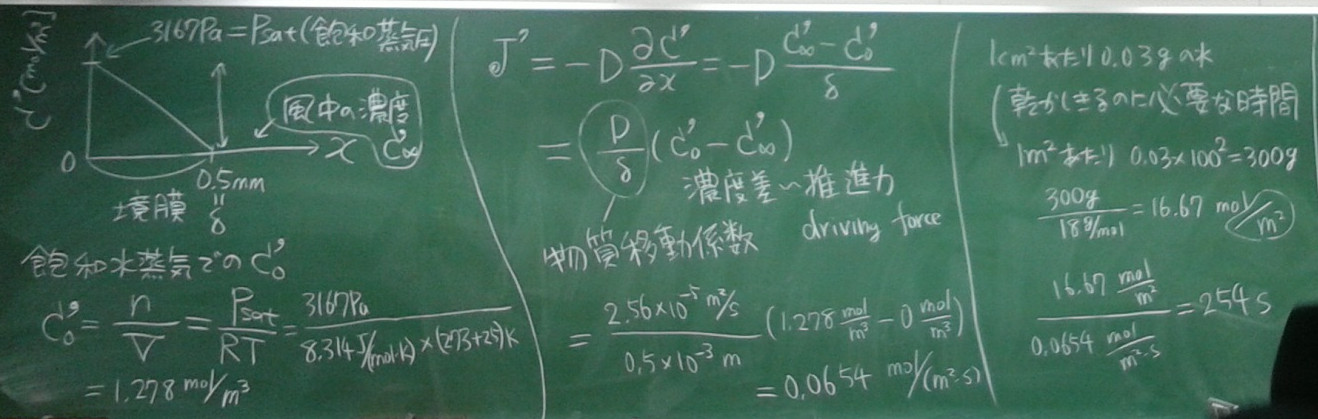 C' [mol/m³]
3167Pa = Psat (飽和蒸気圧)
風中の濃度
C'∞
0
x
0.5mm
境膜 =δ
飽和水蒸気でのC'₀
C'₀ = n/V = Psat/RT = 3167Pa / 8.314 J/(mol·K) × (273+25)K
= 1.278 mol/m³
J' = -D ∂C'/∂x = -D (C'∞ - C'₀)/δ
= D/δ (C'₀ - C'∞)
濃度差〜推進力
driving force
物質移動係数
= 2.56×10⁻⁵ m²/s / 0.5×10⁻³ m (1.278 mol/m³ - 0 mol/m³)
= 0.0654 mol/(m²·s)
1cm²あたり0.03gの水
乾かしきるのに必要な時間
1m²あたり 0.03×100²=300g
300g / 18g/mol = 16.67 mol/m²
16.67 mol/m² / 0.0654 mol/m²·s = 254 s